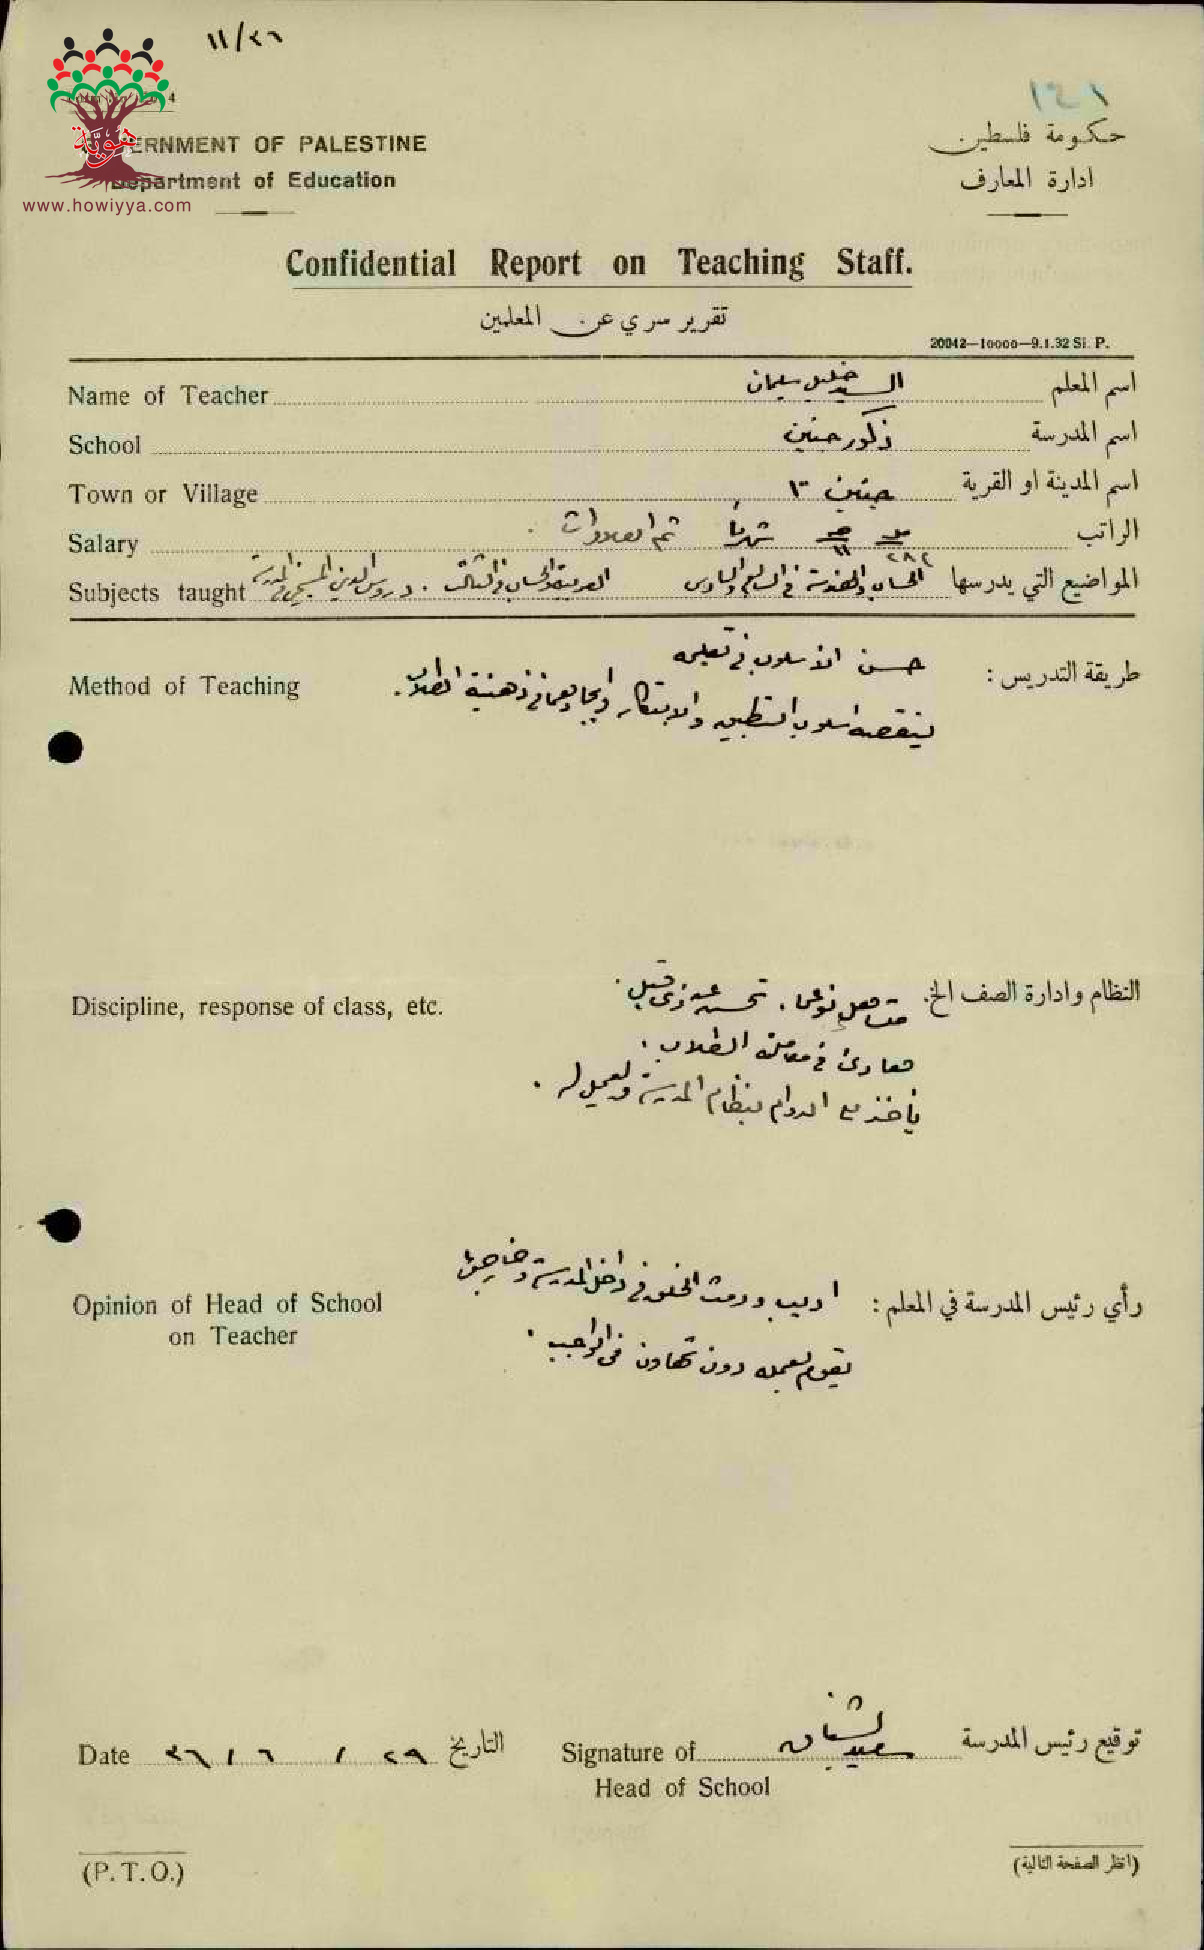 ١١/٢٦
GOVERNMENT OF PALESTINE
Department of Education
حكومة فلسطين
ادارة المعارف
هوية
www.howiyya.com
Confidential Report on Teaching Staff.
تقرير سري عن المعلمين
20042—10000—9.1.32 Si. P.
Name of Teacher السيد خليل سليمان اسم المعلم
School ذكور جنين اسم المدرسة
Town or Village جنين اسم المدينة او القرية
Salary الراتب
Subjects taught المواضيع التي يدرسها الحساب والهندسة في السابع والسادس العربية والحساب في الثالث . دروس الدين المسيحي في المدرسة
Method of Teaching طريقة التدريس : حسن الأسلوب في تعليمه
ينقصه اسلوب التطبيق والابتكار وايجادهما في ذهنية الطلاب .
Discipline, response of class, etc. النظام وادارة الصف الخ. متساهل نوعا . تحسن عن ذي قبل .
هادئ في معاملة الطلاب .
يأخذ مع الدوام بنظام المدرسة ويعمل له .
Opinion of Head of School
on Teacher
رأي رئيس المدرسة في المعلم : اديب ودمث الخلق في داخل المدرسة وخارجها
يقوم بعمله دون تهاون في الواجب .
Date ٢٩ / ٦ / ٣٦ التاريخ
Signature of توقيع رئيس المدرسة
Head of School
(P. T. O.)
(انظر الصفحة التالية)